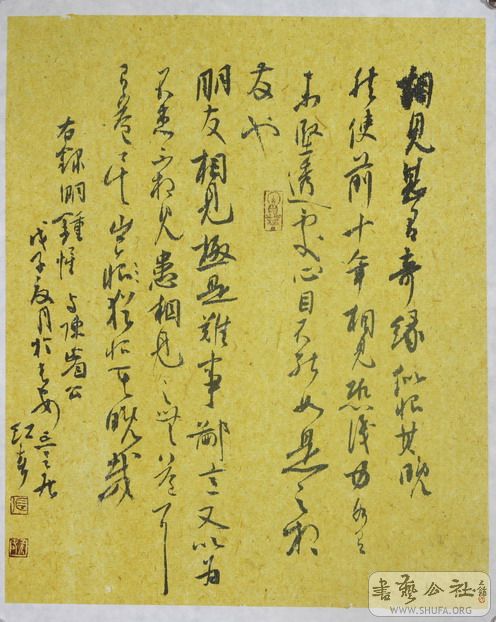 相見甚有奇緣似恨其晚
然使前十年相見恐識力各有
未堅透處心目不能如是之相
發也
朋友相見極是難事鄙意又以為
不患不相見患相見之無益耳
有益矣豈猶恨其晚哉
右錄明鍾惺與陳眉公
戊子夏月於長安
書藝公社
WWW.SHUFA.ORG